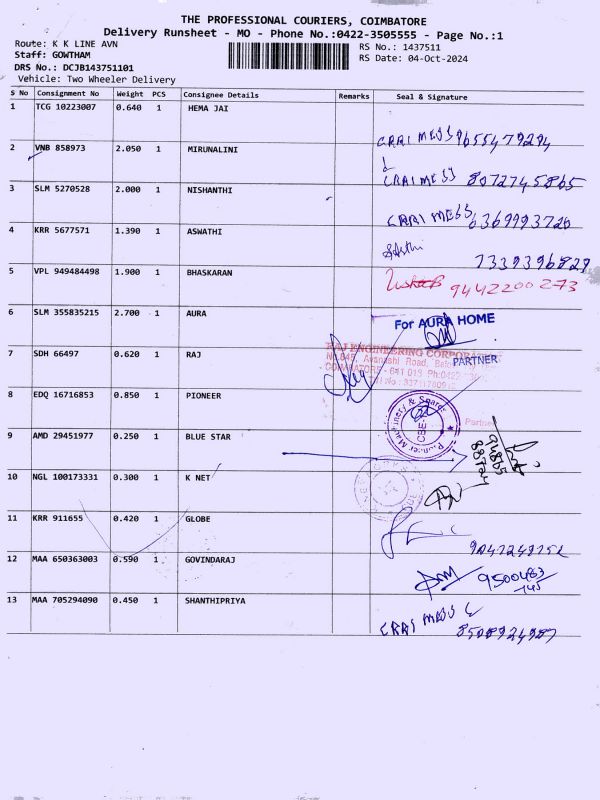 THE PROFESSIONAL COURIERS, COIMBATORE
Delivery Runsheet - MO - Phone No.:0422-3505555 - Page No.:1
Route: K K LINE AVN
RS No.: 1437511
Staff: GOWTHAM
RS Date: 04-Oct-2024
DRS No.: DCJB143751101
Vehicle: Two Wheeler Delivery
S No Consignment No Weight PCS Consignee Details Remarks Seal & Signature
1 TCG 10223007 0.640 1 HEMA JAI
CRRI MESS 9655479294
2 VNB 858973 2.050 1 MIRUNALINI
CRRI MESS 8072745865
3 SLM 5270528 2.000 1 NISHANTHI
CRRI MESS 6369993720
4 KRR 5677571 1.390 1 ASWATHI
7339396829
5 VPL 949484498 1.900 1 BHASKARAN
9442200273
6 SLM 355835215 2.700 1 AURA
For AURA HOME
PARTNER
7 SDH 66497 0.620 1 RAJ
RAJ ENGINEERING
Avanashi Road,
COIMBATORE - 641 018 Ph:0422
8 EDQ 16716853 0.850 1 PIONEER
Pioneer Machinery & Spares
CBE
Partner
9 AMD 29451977 0.250 1 BLUE STAR
10 NGL 100173331 0.300 1 K NET
11 KRR 911655 0.420 1 GLOBE
12 MAA 650363003 0.590 1 GOVINDARAJ
9500483
745
13 MAA 705294090 0.450 1 SHANTHIPRIYA
CRRI MESS
8508924987